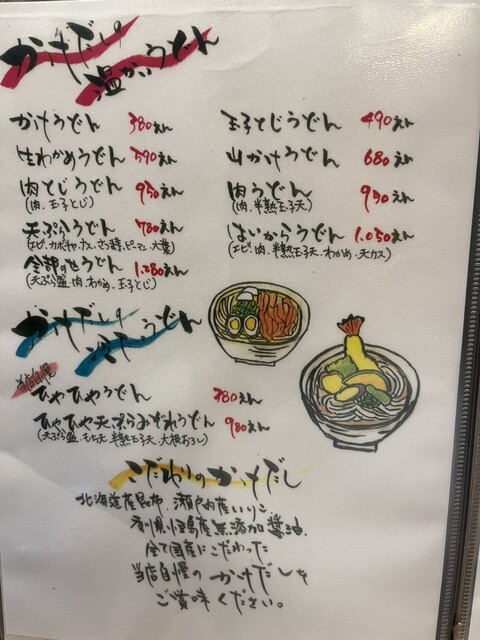 かけだしの
温かいうどん
かけうどん 380えん
生わかめうどん 590えん
肉とじうどん 950えん
(肉、玉子とじ)
天ぷらうどん 780えん
(エビ、カボチャ、ナス、さつま芋、ピーマン、大葉)
全部のせうどん 1,280えん
(天ぷら盛、肉、わかめ、玉子とじ)
玉子とじうどん 490えん
山かけうどん 680えん
肉うどん 950えん
(肉、半熟玉子天)
はいからうどん 1,050えん
(エビ、肉、半熟玉子天、わかめ、天カス)
かけだしの
冷たいうどん
当店自慢
ひやひやうどん 380えん
ひやひや天ぷらみぞれうどん 980えん
(天ぷら盛、もち天、半熟玉子天、大根おろし)
こだわりのかけだし
北海道産昆布、瀬戸内産いりこ
香川県 産無添加醤油、
全て国産にこだわった
当店自慢の かけだしを
ご賞味ください。